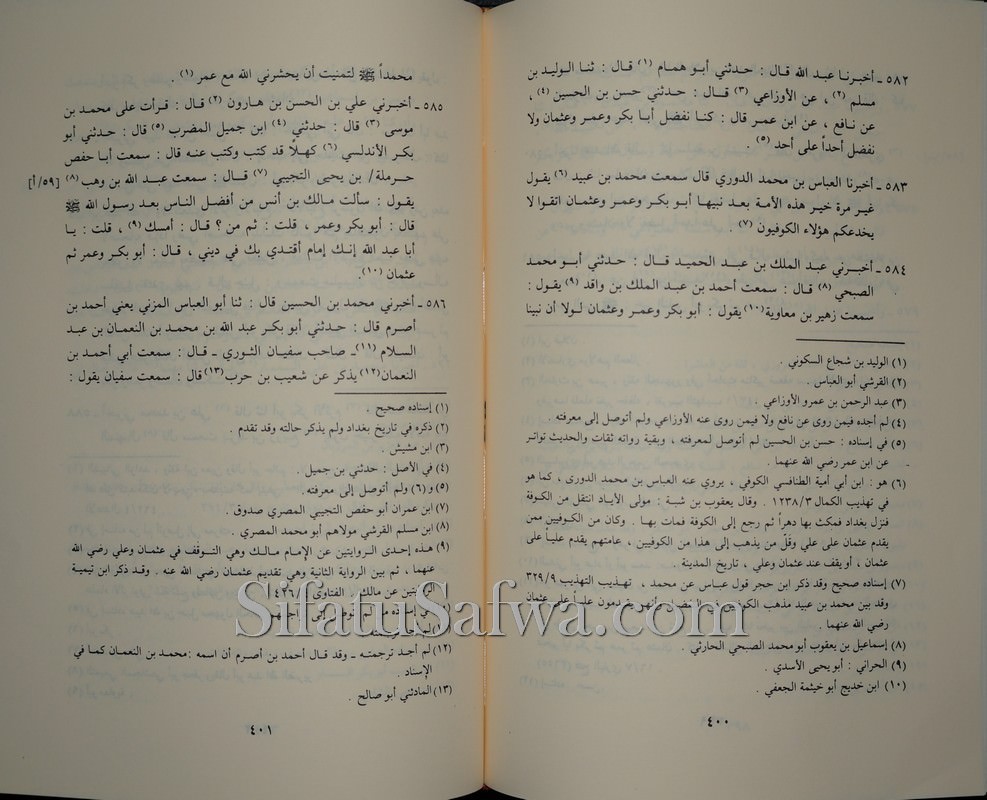 ٥٨٢ ـ أخبرنا عبد الله قال : حدثني أبو همام (١) قال : ثنا الوليد بن
مسلم (٢) ، عن الأوزاعي (٣) قال : حدثني حسن بن الحسين (٤) ،
عن نافع ، عن ابن عمر قال : كنا نفضل أبا بكر وعمر وعثمان ولا
نفضل أحداً على أحد (٥) .
٥٨٣ ـ أخبرنا العباس بن محمد الدوري قال سمعت محمد بن عبيد (٦) يقول
غير مرة خير هذه الأمة بعد نبيها أبو بكر وعمر وعثمان اتقوا لا
يخدعكم هؤلاء الكوفيون (٧) .
٥٨٤ ـ أخبرني عبد الملك بن عبد الحميد قال : حدثني أبو محمد
الصبحي (٨) قال : سمعت أحمد بن عبد الملك بن واقد (٩) يقول :
سمعت زهير بن معاوية (١٠) يقول : أبو بكر وعمر وعثمان لولا أن نبينا
(١) الوليد بن شجاع السكوني .
(٢) القرشي أبو العباس .
(٣) عبد الرحمن بن عمرو الأوزاعي .
(٤) لم أجده فيمن روى عن نافع ولا فيمن روى عنه الأوزاعي ولم أتوصل إلى معرفته .
(٥) في إسناده : حسن بن الحسين لم أتوصل لمعرفته ، وبقية رواته ثقات والحديث تواتر
عن ابن عمر رضي الله عنهما .
(٦) هو : ابن أبي أمية الطنافسي الكوفي ، يروي عنه العباس بن محمد الدورى ، كما هو
في تهذيب الكمال ١٢٣٨/٣ . وقال يعقوب بن شيبة : مولى الأياد انتقل من الكوفة
فنزل بغداد فمكث بها دهراً ثم رجع إلى الكوفة فمات بها . وكان من الكوفيين ممن
يقدم عثمان على علي وقَلَّ من يذهب إلى هذا من الكوفيين ، عامتهم يقدم علياً على
عثمان ، أو يقف عند عثمان وعلي ، تاريخ المدينة .
(٧) إسناده صحيح وقد ذكر ابن حجر قول عباس عن محمد ، تهذيب التهذيب ٣٢٩/٩
وقد بين محمد بن عبيد مذهب الكوفيين في وأنهم يقدمون علياً على عثمان
رضي الله عنهما .
(٨) إسماعيل بن يعقوب أبو محمد الصبحي الحارثي .
(٩) الحراني : أبو يحيى الأسدي .
(١٠) ابن خديج أبو خيثمة الجعفي .
٤٠٠
محمداً ﷺ لتمنيت أن يحشرني الله مع عمر (١) .
٥٨٥ ـ أخبرني علي بن الحسن بن هارون (٢) قال : قرأت على محمد بن
موسى (٣) قال : حدثني (٤) ابن جميل المضرب (٥) قال : حدثني أبو
بكر الأندلسي (٦) كهلًا قد كتب وكتب عنه قال : سمعت أبا حفص
حرملة/ بن يحيى التجيبي (٧) قال : سمعت عبد الله بن وهب (٨) [٥٩/أ]
يقول : سألت مالك بن أنس من أفضل الناس بعد رسول الله ﷺ
قال : أبو بكر وعمر ، قلت : ثم من ؟ قال : أمسك (٩) ، قلت : يا
أبا عبد الله إنك إمام أقتدي بك في ديني ، قال : أبو بكر وعمر ثم
عثمان (١٠).
٥٨٦ ـ أخبرني محمد بن الحسين قال : ثنا أبو العباس المزني يعني أحمد بن
أصرم قال : حدثني أبو بكر عبد الله بن محمد بن النعمان بن عبد
السلام (١١) ـ صاحب سفيان الثوري ـ قال : سمعت أبي أحمد بن
النعمان (١٢) يذكر عن شعيب بن حرب (١٣) قال : سمعت سفيان يقول :
(١) إسناده صحيح .
(٢) ذكره في تاريخ بغداد ولم يذكر حالته وقد تقدم .
(٣) ابن مشيش .
(٤) في الأصل : حدثني بن جميل .
(٥) و(٦) ولم أتوصل إلى معرفته .
(٧) ابن عمران أبو حفص التجيبي المصري صدوق .
(٨) ابن مسلم القرشي مولاهم أبو محمد المصري .
(٩) هذه إحدى الروايتين عن الإمام مالك وهي التوقف في عثمان وعلي رضي الله
عنهما ، ثم بين الرواية الثانية وهي تقديم عثمان رضي الله عنه . وقد ذكر ابن تيمية
الروايتين عن مالك . الفتاوى
إسناده من لم أتوصل إلى
لم أجد ترجمته
(١٢) لم أجد ترجمته ـ وقد قال أحمد بن أصرم أن اسمه : محمد بن النعمان كما في
الإسناد .
(١٣) المادثني أبو صالح .
٤٠١
SifatuSafwa.com